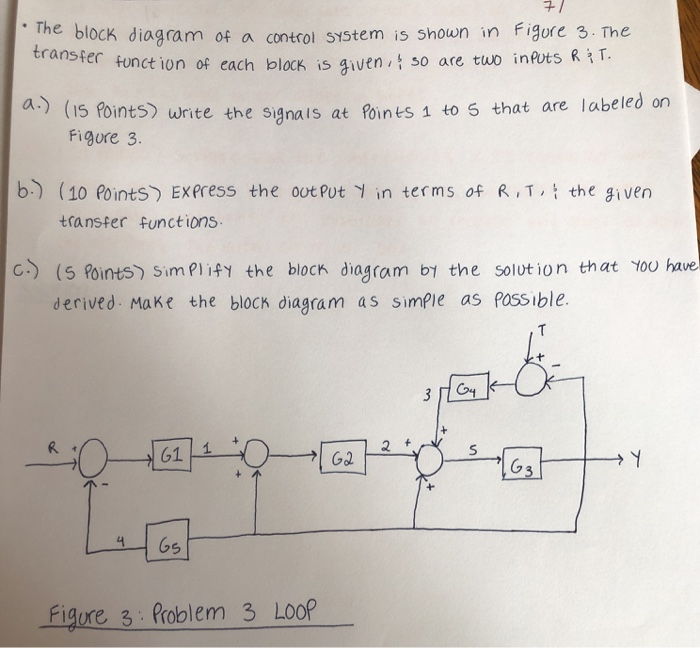 71
• The block diagram of a control system is shown in Figure 3. The
transfer function of each block is given, & so are two inputs R & T.
a.) (15 Points) Write the signals at Points 1 to 5 that are labeled on
Figure 3.
b.) (10 Points) Express the output Y in terms of R, T, & the given
transfer functions.
c.) (5 Points) Simplify the block diagram by the solution that you have
derived. Make the block diagram as simple as possible.
T
+ -
3 G4
+
R + G1 1 + G2 2 + 5 G3 Y
+ +
-
4 G5
Figure 3: Problem 3 Loop